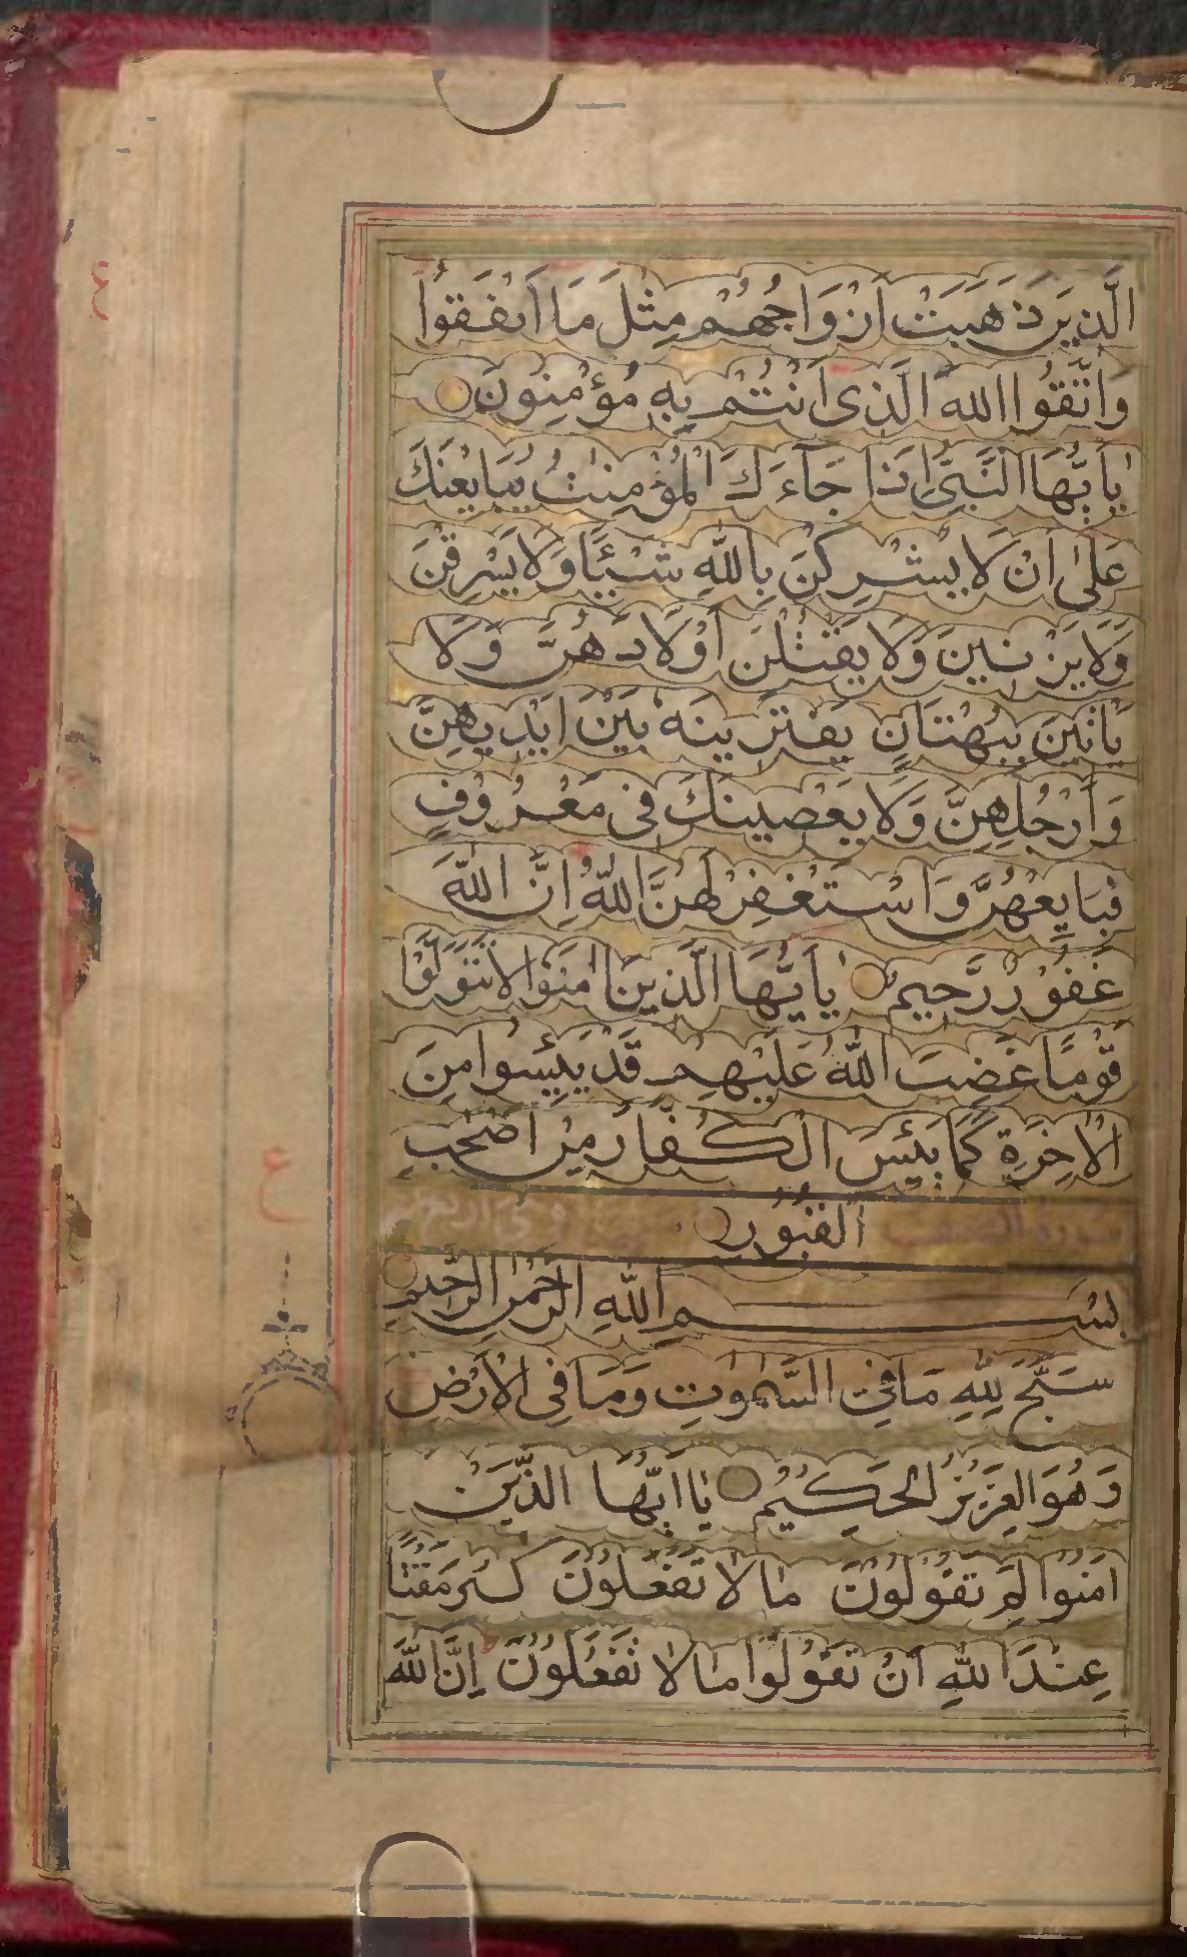 الَّذِينَ ذَهَبَتْ اَزْوَاجُهُمْ مِثْلَ مَا اَنْفَقُوْا
وَاتَّقُوا اللهَ الَّذِى اَنْتُمْ بِهٖ مُؤْمِنُونَ
يٰاَيُّهَا النَّبِىُّ اِذَا جَآءَكَ الْمُؤْمِنٰتُ يُبَايِعْنَكَ
عَلٰى اَنْ لَا يُشْرِكْنَ بِاللّٰهِ شَيْئًا وَلَا يَسْرِقْنَ
وَلَا يَزْنِينَ وَلَا يَقْتُلْنَ اَوْلَادَهُنَّ وَلَا
يَاْتِينَ بِبُهْتَانٍ يَفْتَرِينَهٗ بَيْنَ اَيْدِيهِنَّ
وَاَرْجُلِهِنَّ وَلَا يَعْصِينَكَ فِى مَعْرُوْفٍ
فَبَايِعْهُنَّ وَاسْتَغْفِرْ لَهُنَّ اللّٰهَ اِنَّ اللّٰهَ
غَفُوْرٌ رَّحِيمٌ يٰاَيُّهَا الَّذِينَ اٰمَنُوْا لَا تَتَوَلَّوْا
قَوْمًا غَضِبَ اللّٰهُ عَلَيْهِمْ قَدْ يَئِسُوا مِنَ
الْاٰخِرَةِ كَمَا يَئِسَ الْكُفَّارُ مِنْ اَصْحٰبِ
الْقُبُوْرِ
سورة الصف
بِسْمِ اللّٰهِ الرَّحْمٰنِ الرَّحِيمِ
سَبَّحَ لِلّٰهِ مَا فِى السَّمٰوٰتِ وَمَا فِى الْاَرْضِ
وَهُوَ الْعَزِيزُ الْحَكِيْمُ يٰااَيُّهَا الَّذِّيَنْ
اٰمَنُوْا لِمَ تَقُوْلُوْنَ مَا لَا تَفْعَلُوْنَ كَبُرَ مَقْتًا
عِنْدَ اللّٰهِ اَنْ تَقُوْلُوْا مَا لَا تَفْعَلُوْنَ اِنَّ اللّٰهَ
ع
ع